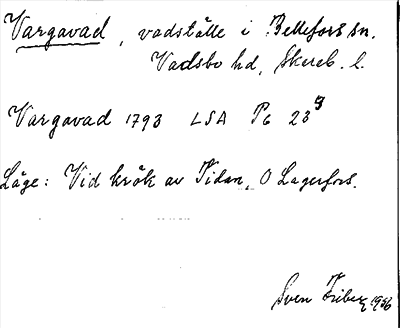 Vargavad, vadställe i Bellefors sn.
Vadsbo hd, Skarab. l.
Vargavad 1793 LSA P6 23⁹
Läge: Vid krök av Tidan, O Lagerfors.
Sven Friberg 1956